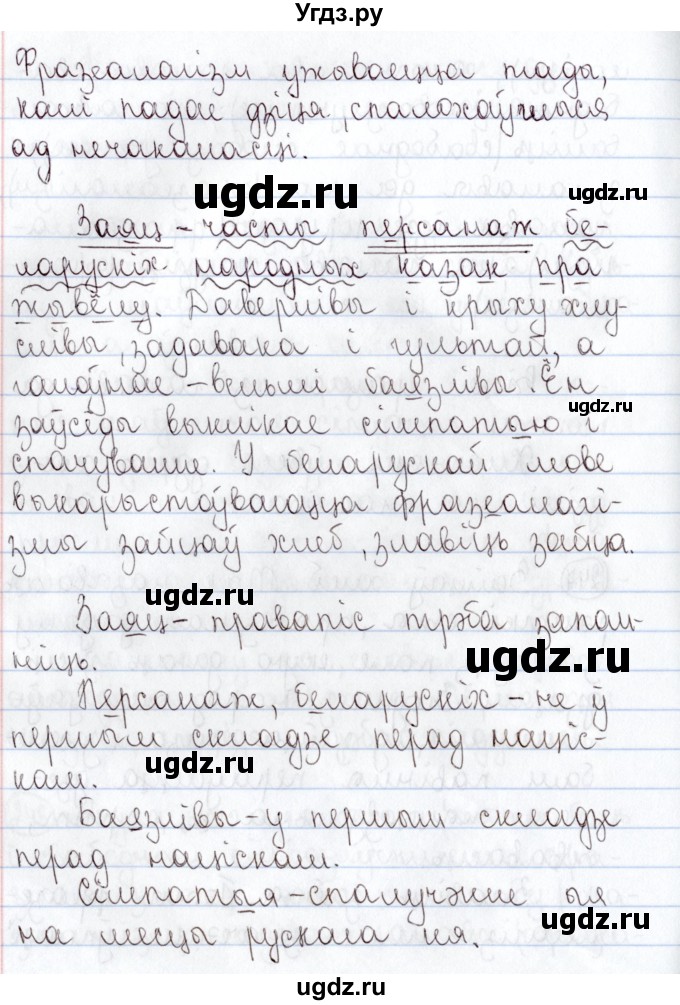 Угдз.ру
Фразеалагізм ужываецца тады,
калі падае дзіця, спалохаўшыся
ад нечаканасці.
ugdz.ru
Заяц – часты персанаж бе-
ларускіх народных казак пра
жывёлу. Даверлівы і крыху хлу-
слівы, задавака і гультай, а
галоўнае – вельмі баязлівы. Ён
ugdz.ru
ugdz.ru
заўсёды выклікае сімпатыю і
спачуванне. У беларускай мове
выкарыстоўваюцца фразеалагі-
змы зайцаў хлеб, злавіць зайца.
ugdz.ru
Заяц – правапіс трэба запом-
ніць.
ugdz.ru
Персанаж, беларускіх – не ў
першым складзе перад націс-
кам.
ugdz.ru
Баязлівы – у першым складзе
перад націскам.
ugdz.ru
Сімпатыя – спалучэнне ыя
на месцы рускага ия.
ugdz.ru